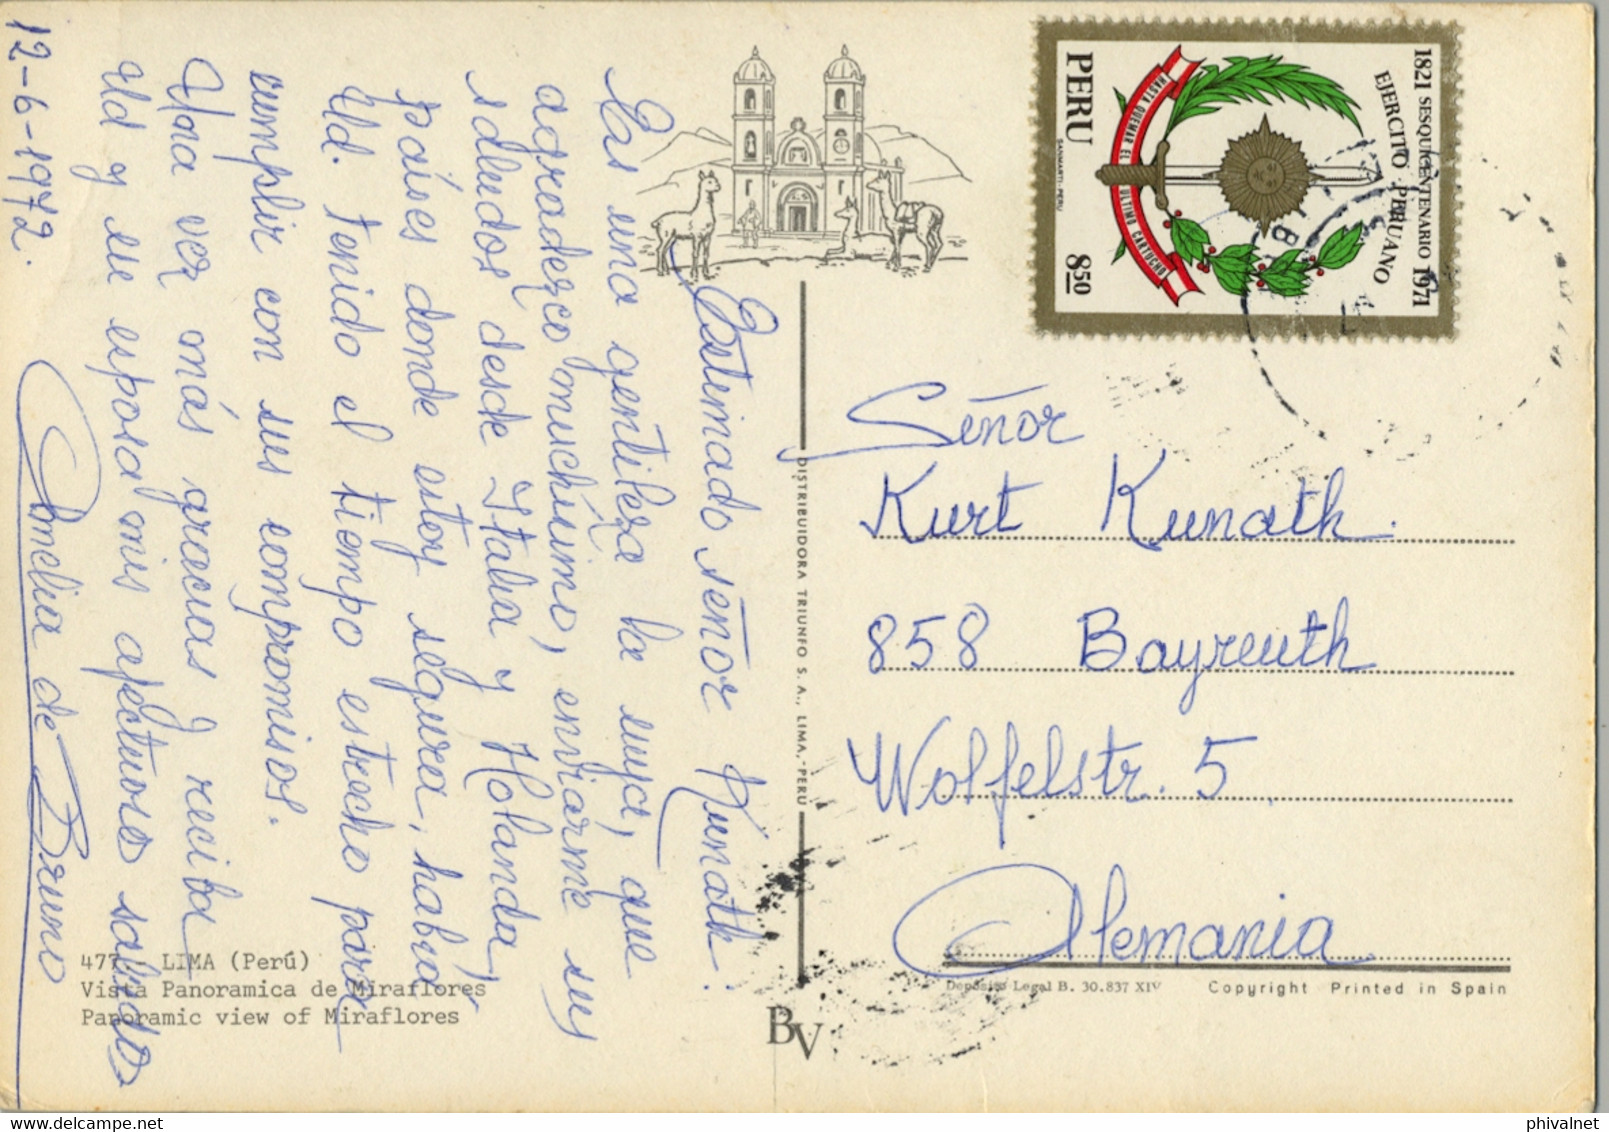 12-6-1972.
Estimado señor Kunath:
Es una gentileza la suya, que
agradezco muchísimo, enviarme sus
saludos desde Italia y Holanda,
países donde estoy segura, habrá
Ud. tenido el tiempo estrecho para
cumplir con sus compromisos.
Una vez más gracias y reciba
Ud y su esposa mis afectuosos saludos
Amelia de Bruno
1821 SESQUICENTENARIO 1971
EJERCITO PERUANO
HASTA QUEMAR EL ULTIMO CARTUCHO
PERU
8.50
SANMARTI-PERU
Señor
Kurt Kunath.
858 Bayreuth
Wolfelstr. 5
Alemania
DISTRIBUIDORA TRIUNFO S. A., LIMA,-PERÚ
477 - LIMA (Perú)
Vista Panoramica de Miraflores
Panoramic view of Miraflores
BV
Depósito Legal B. 30.837 XIV
Copyright Printed in Spain
www.delcampe.net
phivalnet